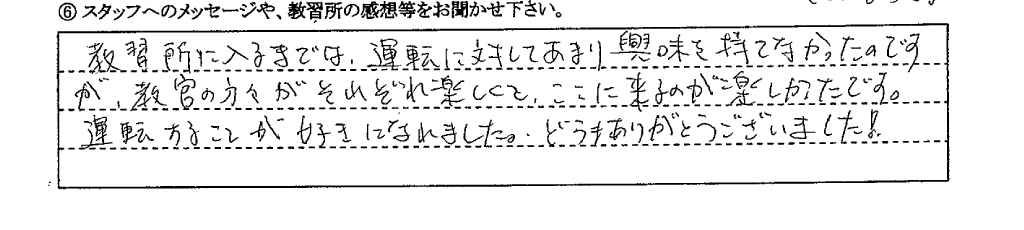 ⑥ スタッフへのメッセージや、教習所の感想等をお聞かせ下さい。
教習所に入るまでは、運転に対してあまり興味を持てなかったのです
が、教官の方々がそれぞれ楽しくて、ここに来るのが楽しかったです。
運転することが好きになれました。どうもありがとうございました!